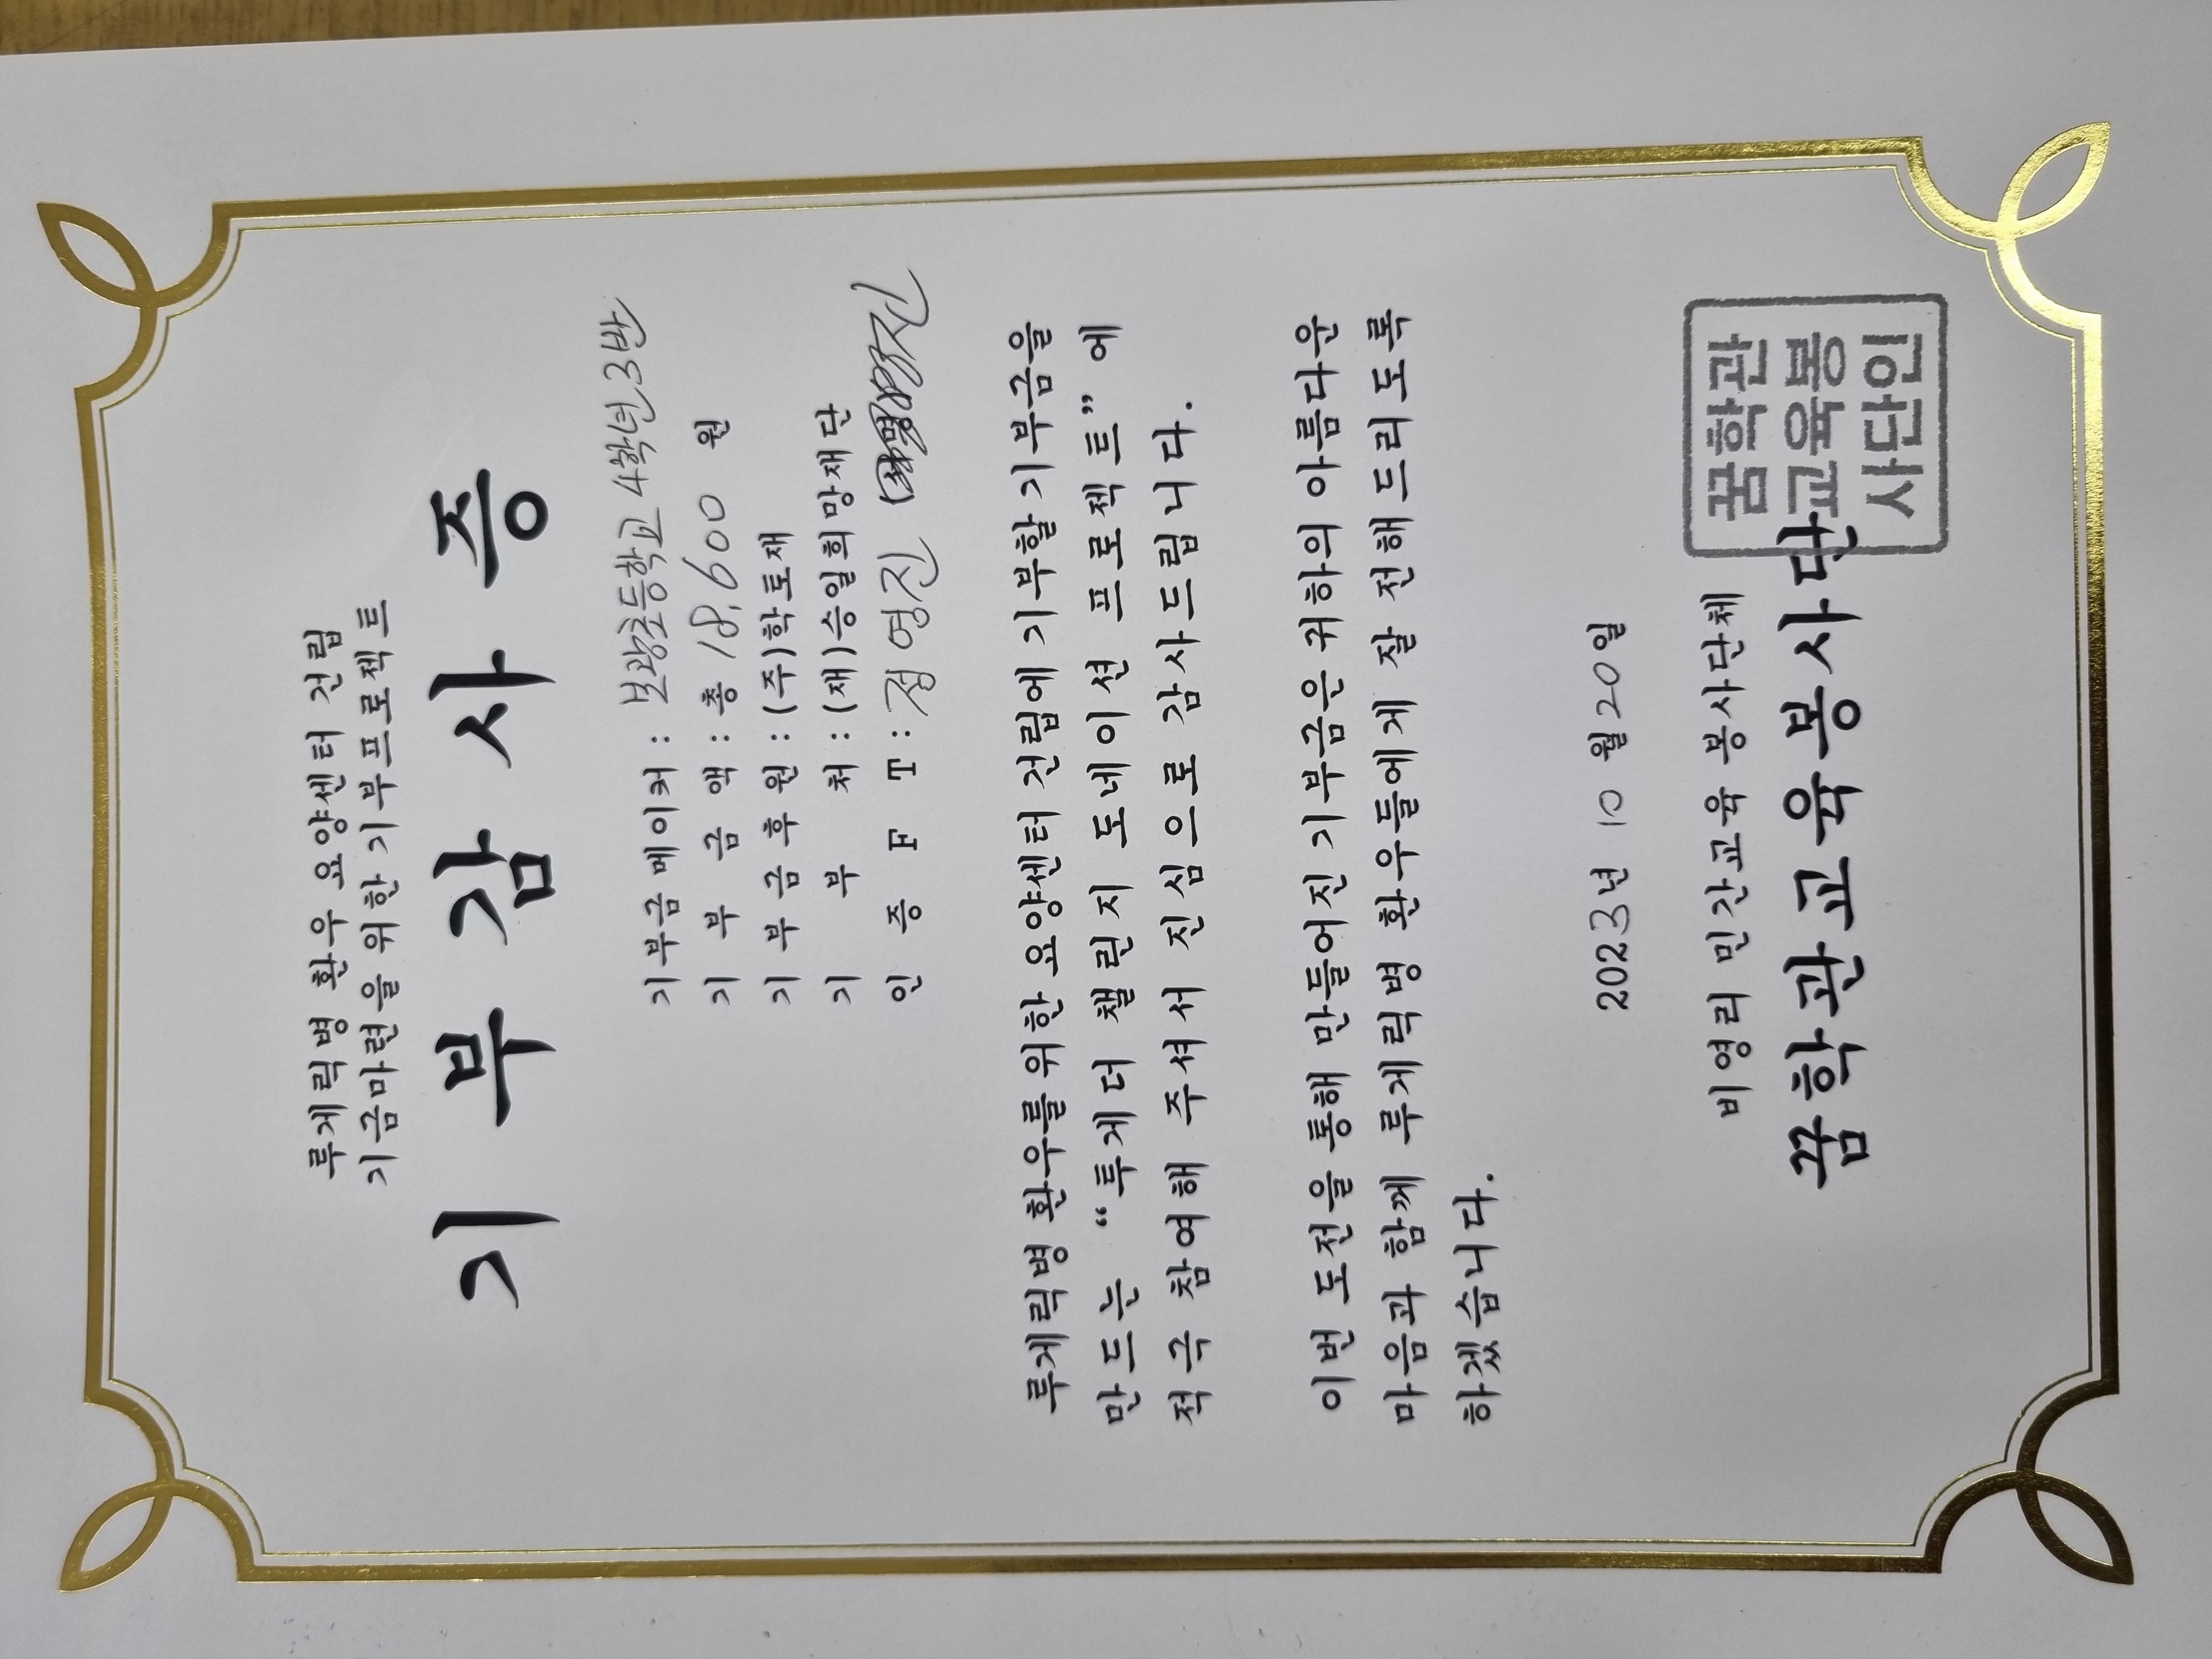 루게릭병 환우 요양센터 건립
기금마련을 위한 기부프로젝트
기 부 감 사 증
기부금메이커 : 보광초등학교 4학년 3반
기 부 금 액 : 총 18,600 원
기 부 금 후 원 : (주)학토재
기 부 처 : (재)승일희망재단
인 증 F T : 정영진
루게릭병 환우를 위한 요양센터 건립에 기부할 기부금을
만드는 “투게더 챌린지 도네이션 프로젝트”에
적극 참여해 주셔서 진심으로 감사드립니다.
이번 도전을 통해 만들어진 기부금은 귀하의 아름다운
마음과 함께 루게릭병 환우들에게 잘 전해드리도록
하겠습니다.
2023년 10 월 20일
비영리 민간교육 봉사단체
꿈학관교육봉사단
꿈학관
교육봉
사단인